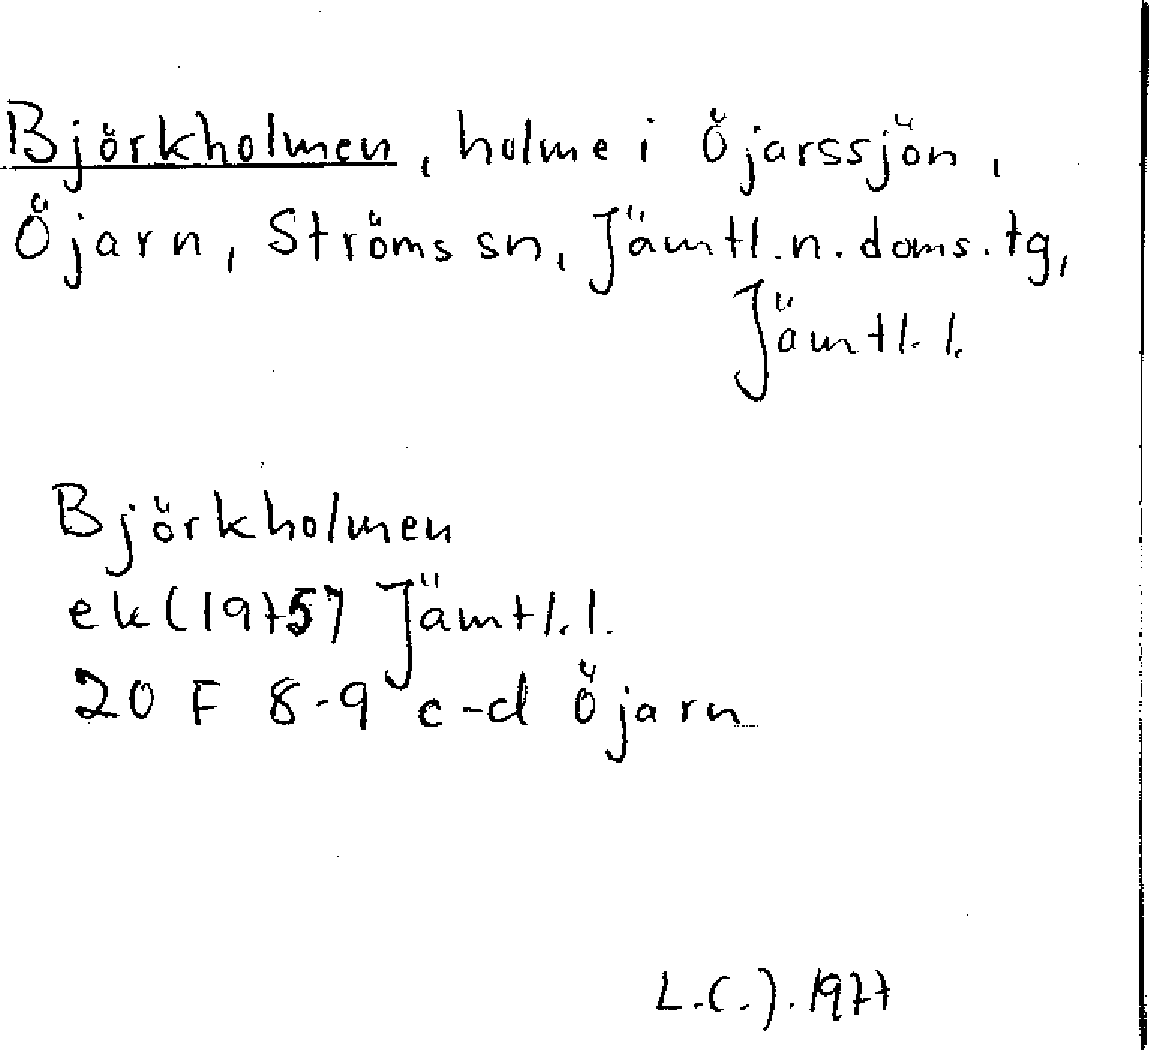 Björkholmen, holme i Öjarssjön,
Öjarn, Ströms sn, Jämtl. n. doms. tg,
Jämtl. l.
Björkholmen
ek (1975) Jämtl. l.
20 F 8-9 c-d Öjarn
L.C.J. 1977